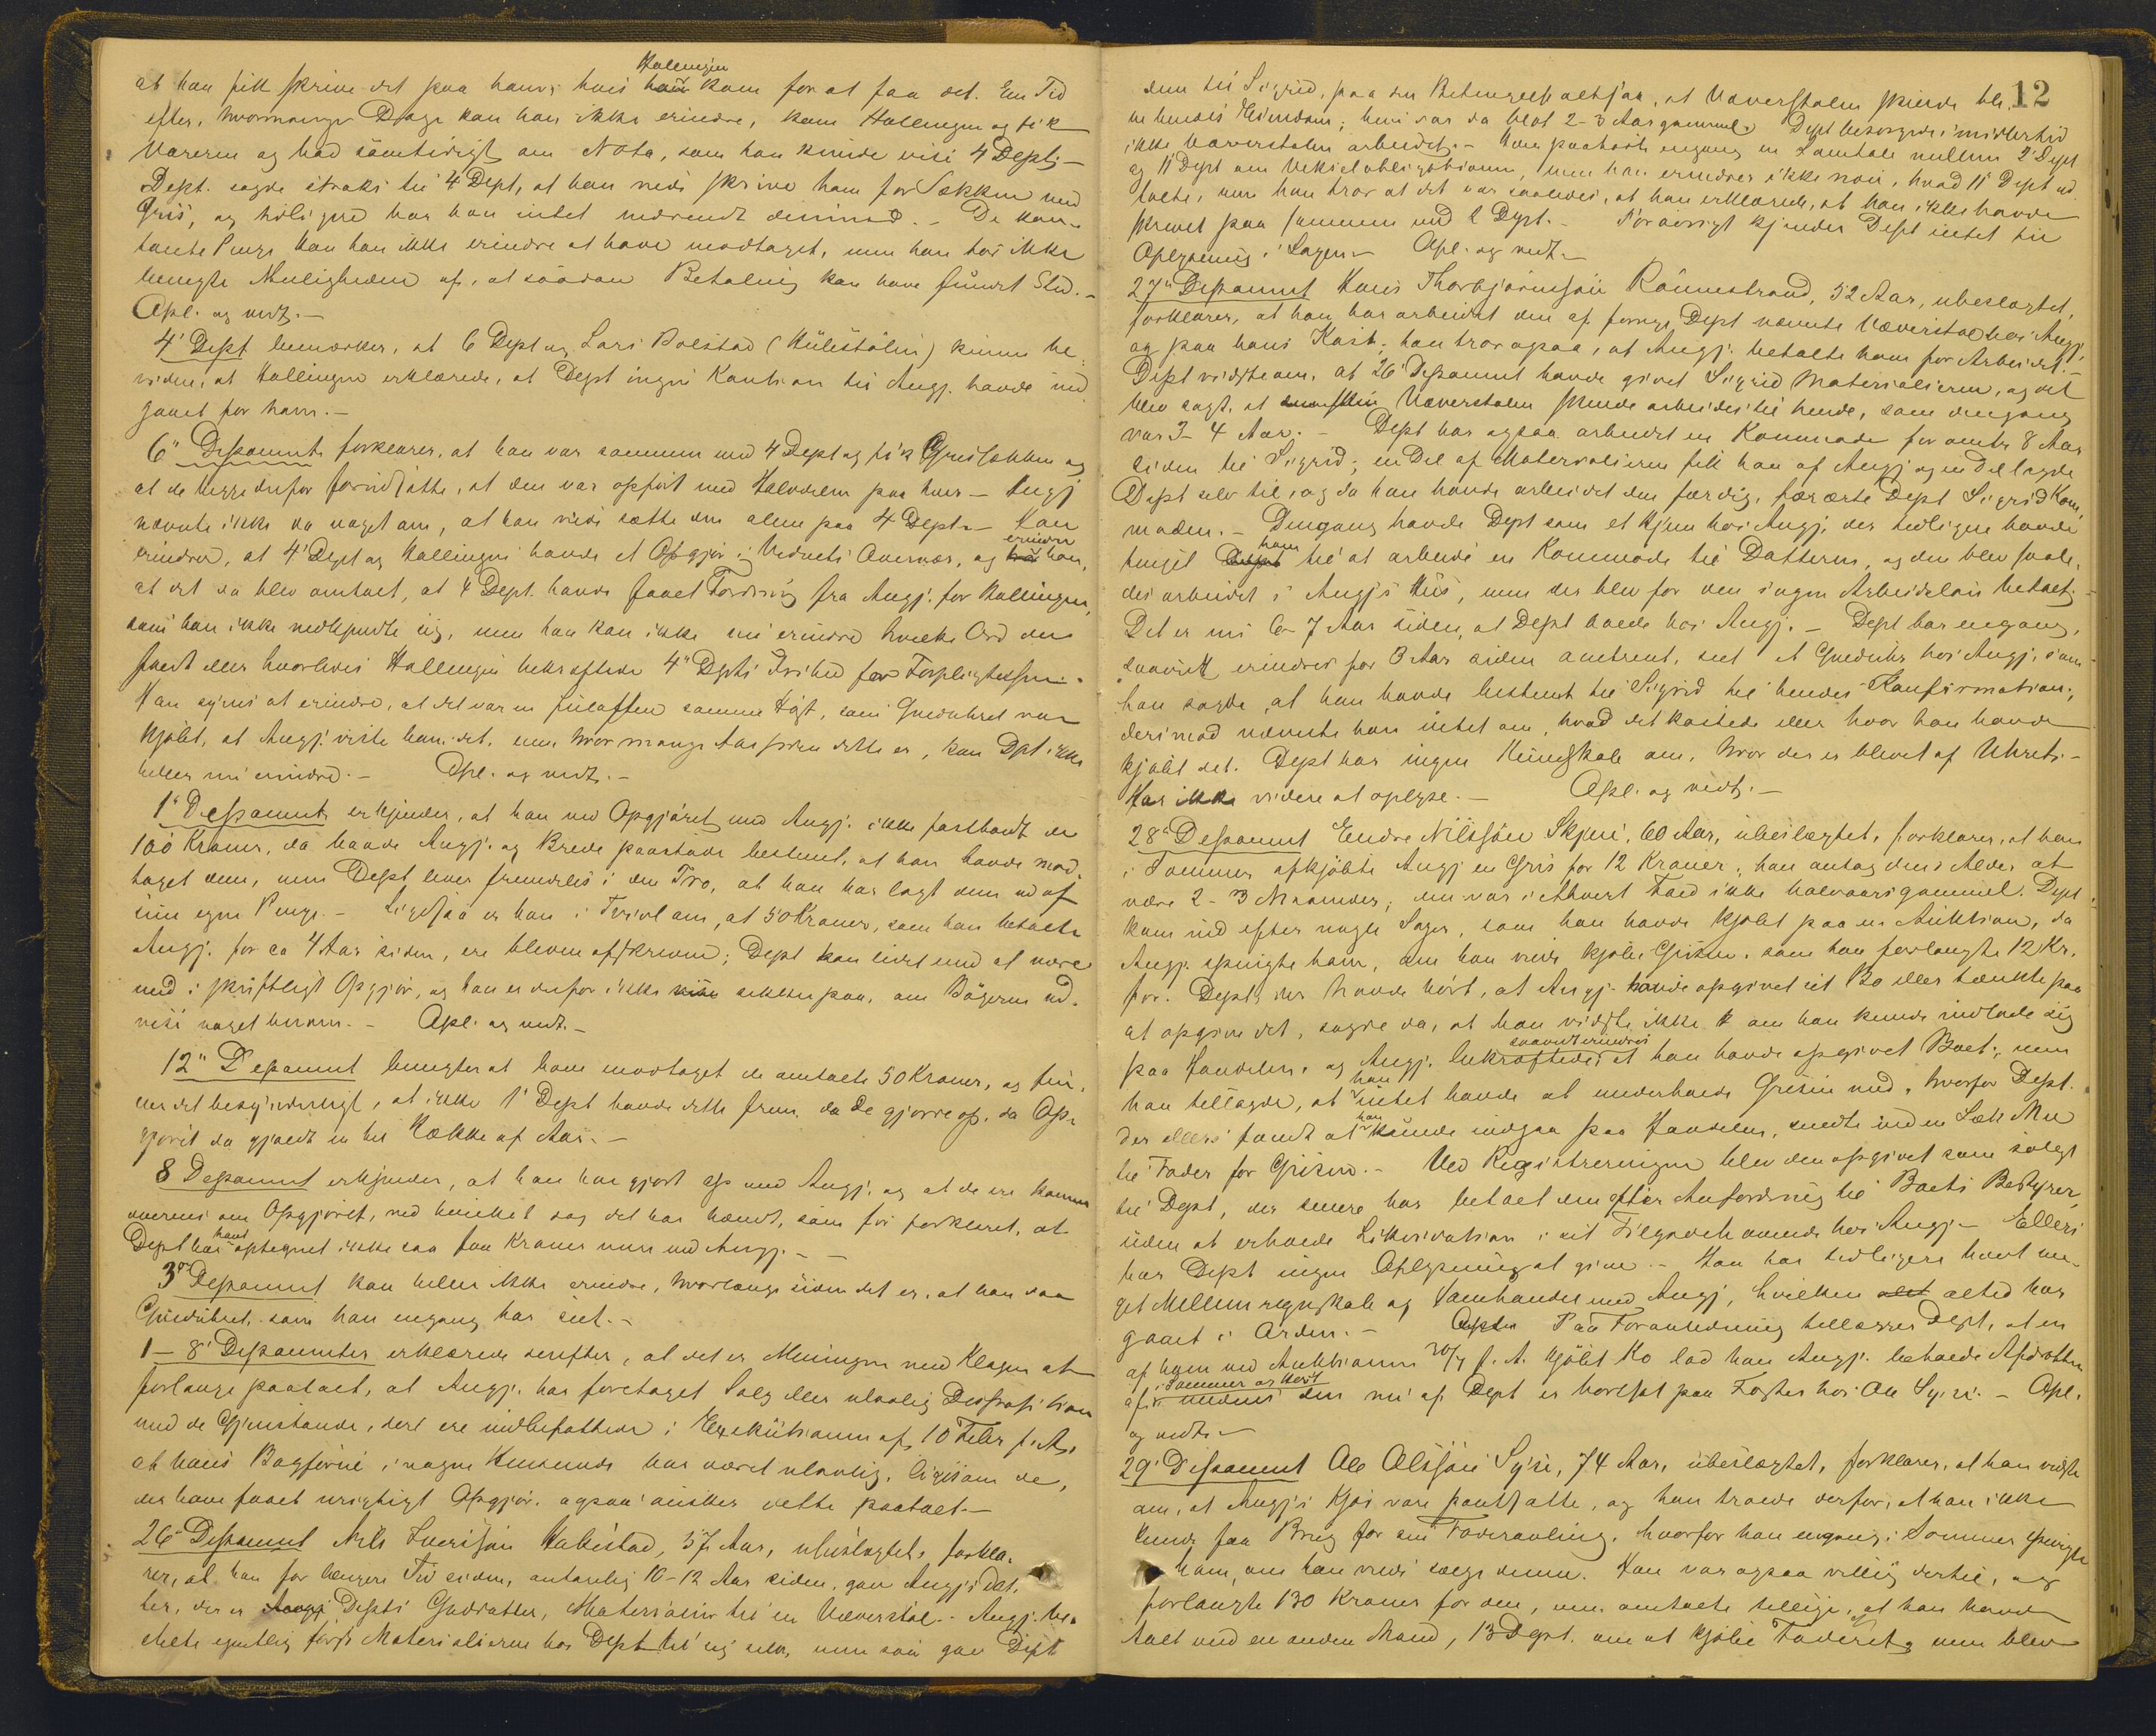 Hallingen
at han fik skrive det paa ham, hvis han kom for at faa det. En Tid
efter, hvormange Dage kan han ikke erindre, kom Hallingen og fik
Varerne og bad samtidigt om Nota, som han kunde vise 4 Dept; –
Dept. sagde straks til 4 Dept, at han vilde skrive ham for Sækken med
Gris, og hiin har han intet nævendt derimod. – De kon-
tante Penge kan han ikke erindre at have modtaget, men han tør ikke
benegte Muligheden af, at saadan Betaling kan have fundet Sted. –
Opl. og vedt. –
4' Dept bemærker, at 6 Dept og Lars Bolstad (Hülestölen) kunne be-
vidne, at Hallingen erklærede, at Dept ingen Kaution til Angj. havde ind-
gaaet for ham. –
6" Deponent forklarer, at han var sammen med 4 Dept og fik Grissækken og
at de begge derfor forudsatte, at den var opført med Halvdelen paa hver – Angj
nævnte ikke da noget om, at han vilde sætte den alene paa 4 Dept. – Han
erindrer, at 4' Dept og Hallingen havde et Opgjør i Vednets Overvær, og erindrer han,
at det da blev omtalt, at 4 Dept. havde faaet Fordring fra Angj. for Hallingen,
som han ikke vedkjendte sig, men han kan ikke nu erindre hvilke Ord der
faldt eller hvorledes Hallingen bekræftede 4" Depts Frihed for Forpligtelsen. –
Han synes at erindre, at det var en Juleaften samme Høst, som Gulduhret var
kjøbt, at Angj. viste ham det, men hvor mange Aar siden dette er, kan Dpt ikke
heller nu erindre. – Opl. og vedt. –
1' Deponent erkjender, at han ved Opgjøret med Angj. ikke fastholdt de
100 Kroner, da baade Angj. og Brede paastod bestemt, at han havde mod-
taget dem, men Dept lever fremdeles i den Tro, at han har lagt dem ud af
sine egne Penge. – Ligesaa er han i Tvivl om, at 50 Kroner, som han betalte
Angj. for ca 4 Aar siden, ere bleven afskrevne; Dept kan lidet med at være
med i skriftligt Opgjør, og han er derfor ikke sikker paa, om Bøgerne ud-
vise noget herom. – Opl. og vedt. –
12" Deponent benegter at have modtaget de omtalte 50 Kroner, og fin-
der det besynderligt, at ikke 1' Dept havde dette frem, da de gjorde op, da Op-
gjøret da gjaldt en hel Række af Aar. –
8 Deponent erkjender, at han har gjort op med Angj. og at de ere komne
overens om Opgjøret, ved hvilket dog det har hændt, som før forklaret, at
Dept havt har optegnet ikke saa faa Kroner mere end Angj. – –
3die Deponent kan heller ikke erindre, hvorlænge siden det er, at han saa
Guldühret, som han engang har seet. –
1 – 8' Deponenter erklærede derefter, at det er Meningen med Klagen at
forlange paatalt, at Angj. har foretaget Salg eller ulovlig Disposition
med de Gjenstande, der ere indbefattede i Exekutionen af 10 Febr. f. A.,
at hans Bogførsel i nogen Henseende har været ulovlig, ligesom de,
der have faaet urigtigt Opgjør, ogsaa ønsker dette paatalt. –
26" Deponent Nils Iversøn Kabestad, 57 Aar, ubeslægtet, forkla-
rer, at han for længere Tid siden, antagelig 10–12 Aar siden, gav Angj's Dat-
ter, der er Depts Guddatter, Materialier til en Væverstol. – Angj. be-
stilte egentlig først Materialierne hos Dept til sig selv, men saa gav Dept
12
dem til Sigrid, paa den Betingelse altsaa, at Væverstolen skulde bli-
ve hendes Eiendom; hun var da blot 2–3 Aar gammel. Dept besørgede imidlertid
ikke Væverstolen arbeidet. – Han paahørte engang en Samtale mellem 2' Dept
og 11' Dept om Vekselobligationen, men han erindrer ikke nøie, hvad 11' Dept ud-
talte, men han tror at det var saaledes, at han erklærede, at han ikke havde
skrevet paa sammen med 2 Dept. – Forøvrigt kjender Dept intet til
Oplysning i Sagen. – Opl. og vedt. –
27" Deponent Hans Thorbjørnsøn Rönnestrand, 52 Aar, ubeslægtet,
forklarer, at han har arbeidet den af forrige Dept nævnte Væverstol hos Angj.
og paa hans Kost; han tror ogsaa, at Angj. betalte ham for Arbeidet. –
Dept vidste om, at 26' Deponent havde givet Sigrid Materialierne, og det
blev sagt, at Væverstolen skulde arbeides til hende, som dengang
var 3–4 Aar. – Dept har ogsaa arbeidet en Kommode for omtr. 8 Aar
siden til Sigrid; en Del af Materialierne fik han af Angj og en Del lagde
Dept selv til, og da han havde arbeidet den færdig, forærte Dept Sigrid Kom-
moden. – Dengang havde Dept som et Hjem hos Angj., der tidligere havde
tinget ham til at arbeide en Kommode til Datteren, og den blev saale-
des arbeidet i Angj's Hus, men der blev for den ingen Arbeidsløn betalt. –
Det er nu 6–7 Aar siden, at Dept boede hos Angj. – Dept har engang,
saavidt erindrer for 3 Aar siden omtrent, seet et Gulduhr hos Angj., som
han sagde, at han havde bestemt til Sigrid til hendes Konfirmation;
derimod nævnte han intet om, hvad det kostede eller hvor han havde
kjøbt det. Dept har ingen Kundskab om, hvor der er blevet af Uhret. –
Har ikke videre at oplyse. – Opl. og vedt. –
28" Deponent Endre Nilssøn Skjeri, 60 Aar, ubeslægtet, forklarer, at han
i Sommer afkjøbte Angj en Gris for 12 Kroner, han antog dens Alder at
være 2–3 Maaneder; den var i ethvert Fald ikke halvaarsgammel. Dept
kom ned efter nogle Sager, som han havde kjøbt paa en Auktion, da
Angj. spurgte ham, om han vilde kjøbe Grisen, som han forlangte 12 Kr.
for. Dept, der havde hørt, at Angj. havde opgivet sit Bo eller tænkte paa
at opgive det, sagde da, at han vidste ikke om han kunde indlade sig
paa Handelen, og Angj. bekræftede, saavidt erindres at han havde opgivet Boet; men
han tillagde, at han intet havde at underholde Grisen med, hvorfor Dept.
der ellers fandt at han kunde indgaa paa Handelen, sendte ind en Sæk Mel
til Foder for Grisen. – Ved Registreringen blev den opgivet som solgt
til Dept, der senere har betalt den efter Anfordring til Boets Bestyrer,
uden at erholde Likvidation i sit Tilgodehavende hos Angj. – Ellers
har Dept ingen Oplysning at give. – Han har tidligere havt me-
get Mellemregnskab og Samhandel med Angj., hvilken altid har
gaaet i Orden. – Paa Foranledning tillægger Dept, at en
af ham ved Auktionen 20/7 f. A. kjøbt Ko lod han Angj. beholde Afdrotten
af i Sommer og Høst medens den nu af Dept er bortsat paa Foster hos Ole Syse. – Opl.
og vedt. –
29' Deponent Ole Olssøn Syse, 74 Aar, ubeslægtet, forklarer, at han vidste
om, at Angj's Kjør vare pantsatte, og han troede derfor, at han ikke
kunde faa Brug for sin Foderavling, hvorfor han engang i Sommer spurgte
ham, om han vilde sælge denne. Han var ogsaa villig dertil, og
forlangte 130 Kroner for den, men omtalte tillige, at han havde
talt med en anden Mand, 13 Dept. om at kjøbe Foderet, men blev